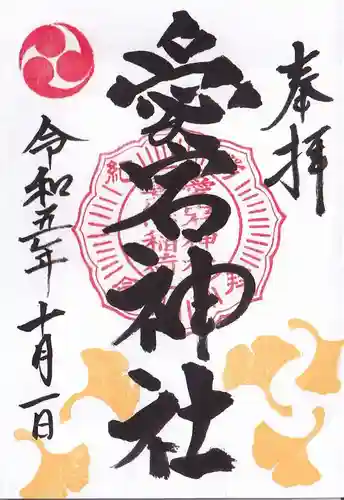 奉拝
愛宕神社
令和五年
十月一日